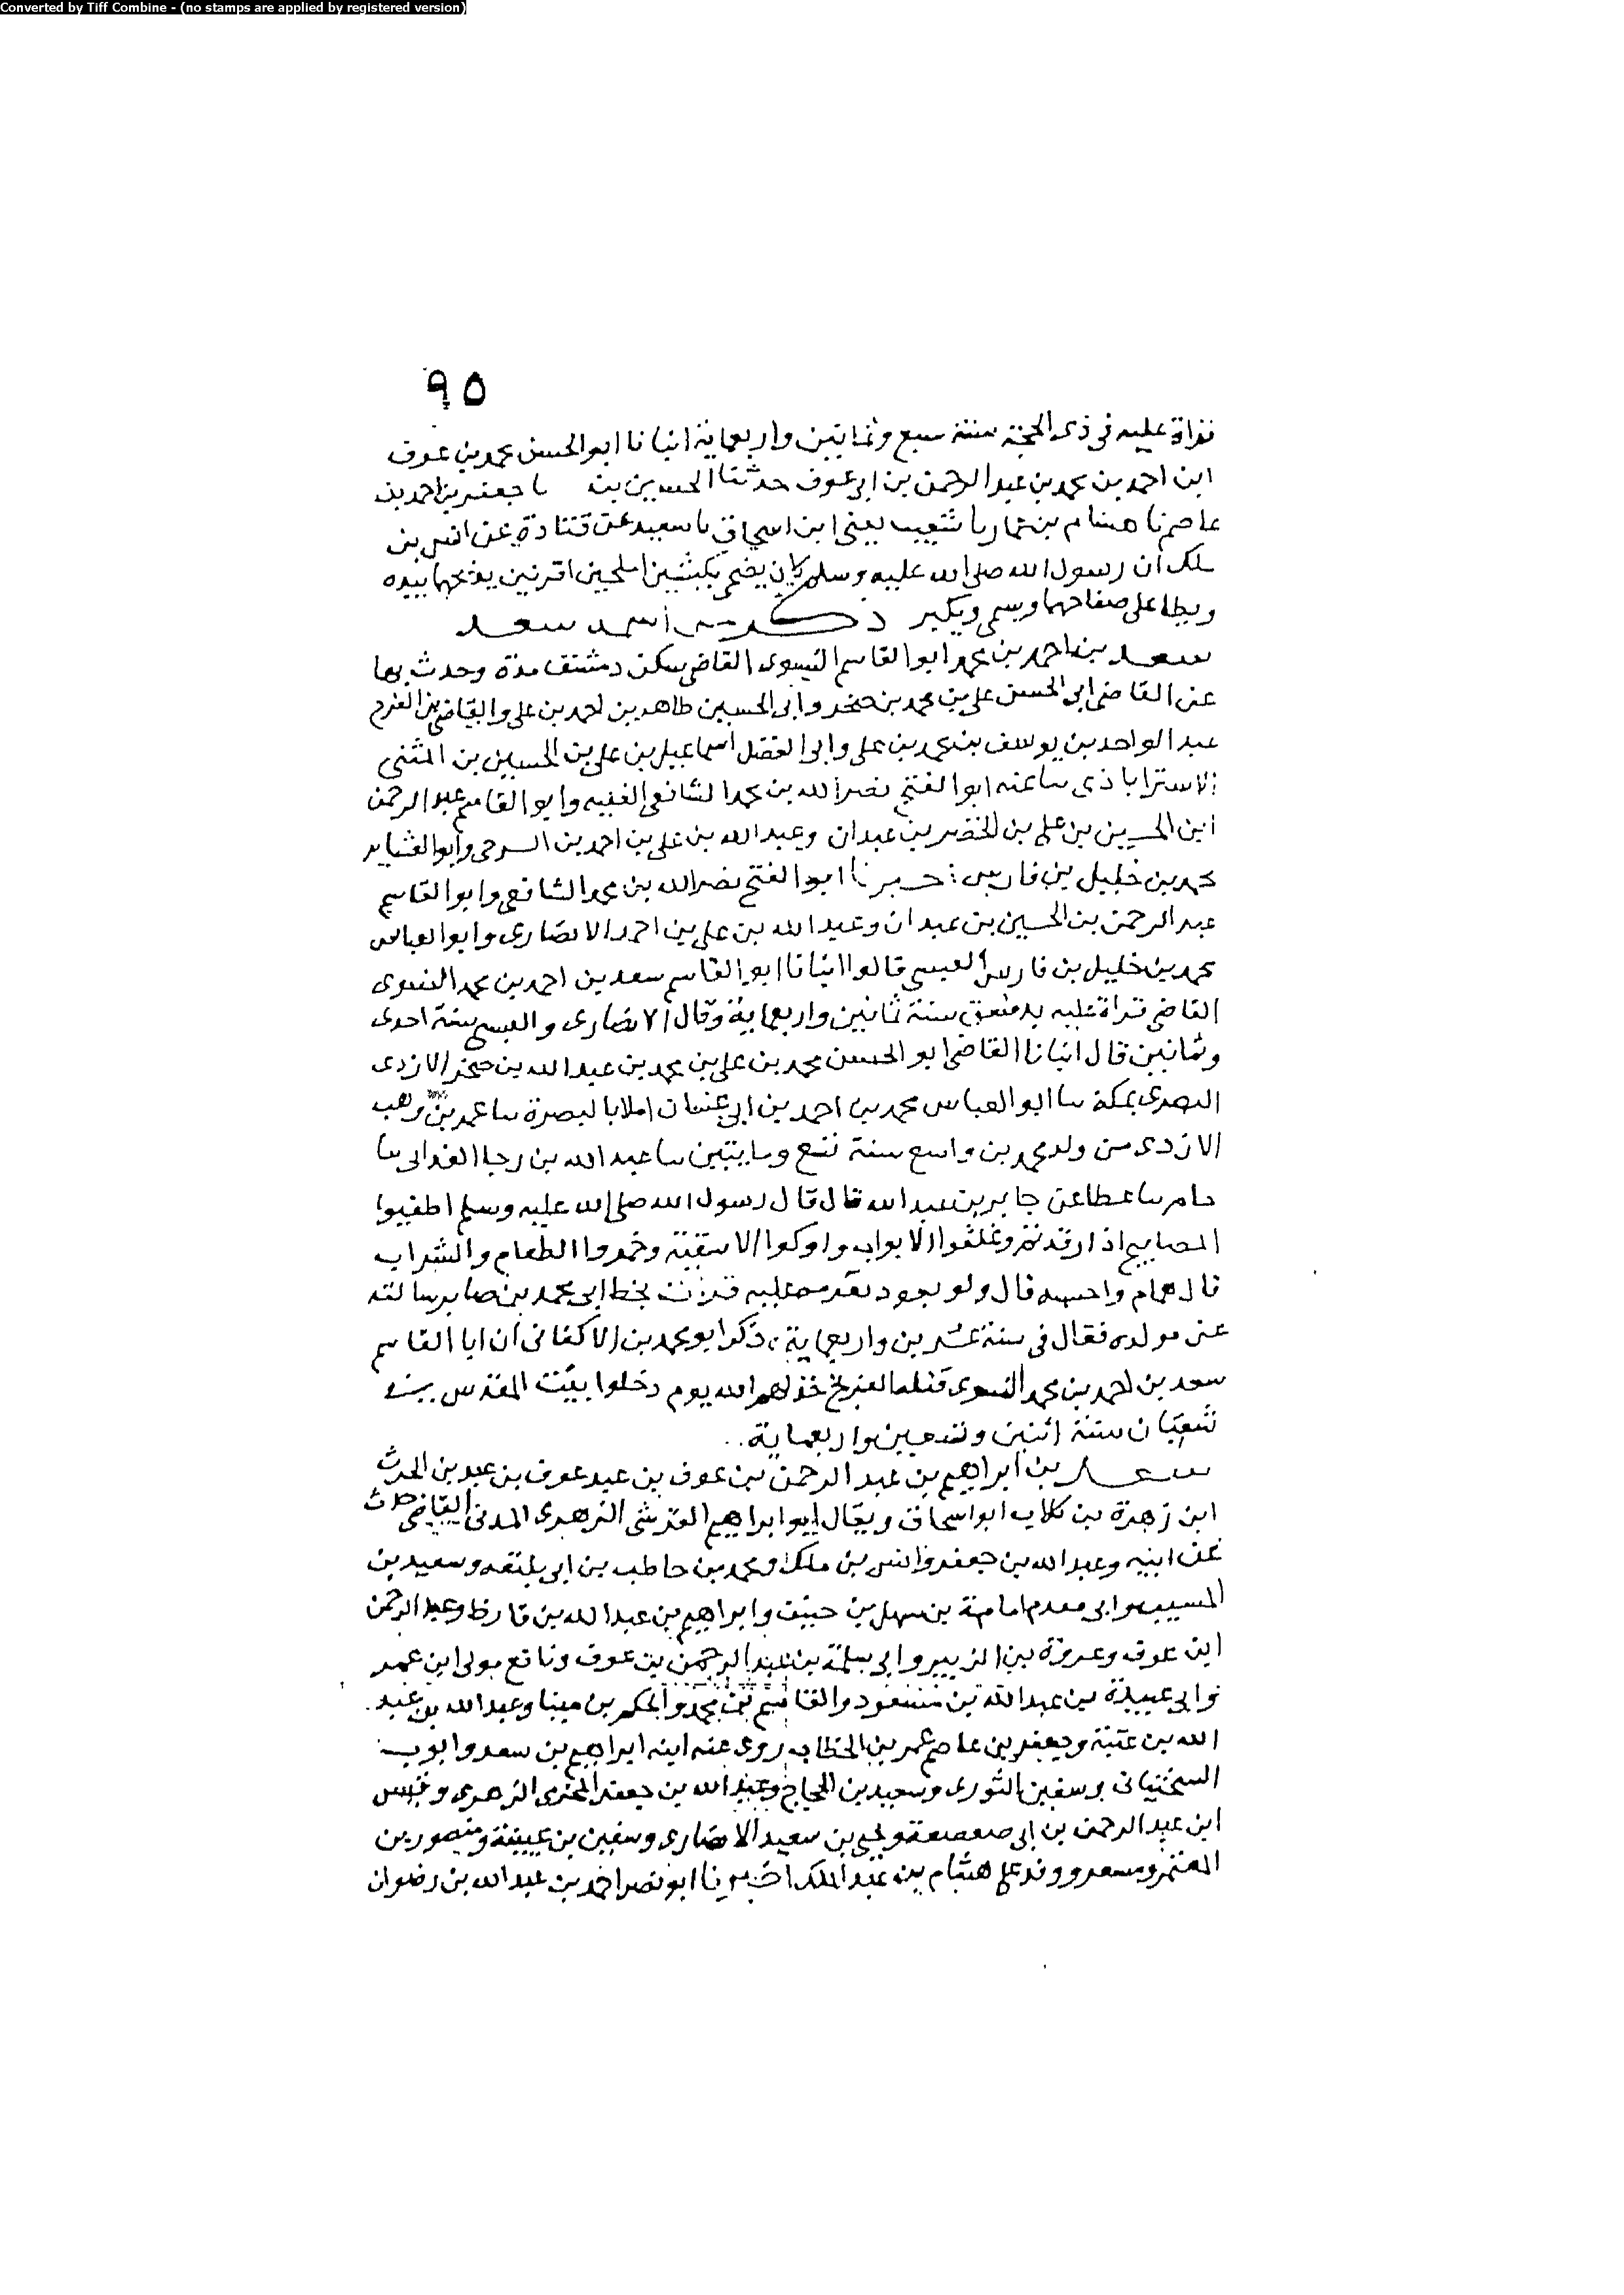 Converted by Tiff Combine - (no stamps are applied by registered version)
٩٥
قراة عليه فى ذى الحجة سنة سبع وثمانين واربعماية انبانا ابو الحسن محمد بن عوف
ابن احمد بن محمد بن عبد الرحمن بن ابى عوف حدثنا الحسين بن نا جعفر بن احمد بن
عاصم نا هشام بن عمار نا شعيب يعنى ابن اسحاق نا سعيد عن قتادة عن انس بن
ملك ان رسول الله صلى الله عليه وسلم كان يضحى بكبشين املحين اقرنين يذبحهما بيده
ويطا على صفاحهما ويسمى ويكبر ذكر من اسمه سعد
سعد بن احمد بن محمد ابو القاسم النسوى القاضى سكن دمشق مدة وحدث بها
عن القاضى ابى الحسن على بن محمد بن صخر وابى الحسين طاهر بن احمد بن على والقاضى الفرج
عبد الواحد بن يوسف بن محمد بن على وابى الفضل اسماعيل بن على بن الحسين بن المثنى
الاستراباذى سا عنه ابو الفتح نصر الله بن محمد الشافعى الفقيه وابو القاسم عبد الرحمن
ابن الحسين بن على بن الخضر بن عبدان وعبد الله بن على بن احمد بن وابو العشاير
محمد بن خليل بن فارس حبرنا ابو الفتح نصر الله بن محمد الشافعى وابو القاسم
عبد الرحمن بن الحسين بن عبدان وعبد الله بن على بن احمد الانصارى وابو العباس
محمد بن خليل بن فارس العبسى قالوا انبانا ابو القاسم سعد بن احمد بن محمد النسوى
القاضى قراة عليه بدمشق سنة ثمانين واربعماية وقال الانصارى والعبسى سنة احدى
وثمانين قال انبانا القاضى ابو الحسن محمد بن على بن محمد بن عبد الله بن صخر الازدى
البصرى بمكة سا ابو العباس محمد بن احمد بن ابى غسان املا بالبصرة سا محمد بن وهب
الازدى من ولد محمد بن واسع سنة تسع ومايتين سا عبد الله بن رجا الغدانى سا
همام سا عطا عن جابر بن عبد الله قال قال رسول الله صلى الله عليه وسلم اطفيوا
المصابيح اذا رقدتم وغلقوا الابواب واوكوا الاسقية وخمروا الطعام والشراب
قال همام واحسبه قال ولو بعود تعرضه عليه قرات بخط ابى محمد بن صابر سالته
عن مولده فقال فى سنة عشرين واربعماية ذكر ابو محمد بن الاكفانى ان ابا القاسم
سعد بن احمد بن محمد النسوى قتله الفرنج خذلهم الله يوم دخلوا بيت المقدس
شعبان سنة اثنين وتسعين واربعماية
سعد بن ابراهيم بن عبد الرحمن بن عوف بن عبد عوف بن عبد بن الحرث
ابن زهرة بن كلاب ابو اسحاق ويقال ابو ابراهيم القرشى الزهرى المدنى القاضى حدث
عن ابيه وعبد الله بن جعفر وانس بن ملك ومحمد بن حاطب بن ابى بلتعه وسعيد بن
المسيب وابى امامة بن سهل بن حنيف وابراهيم بن عبد الله بن قارظ وعبد الرحمن
ابن عوف وعروة بن الزبير وابى سلمة بن عبد الرحمن بن عوف ونافع مولى ابن عمر
وابى عبيدة بن عبد الله بن مسعود والقاسم بن محمد والحكم بن مينا وعبد الله بن عبد
الله بن عتبة وجعفر بن عاصم عمر بن الخطاب روى عنه ابنه ابراهيم بن سعد وايوب
السختيانى وسفين الثورى وسعيد بن الحجاج وعبد الله بن جعفر المخرمى الزهرى وقيس
ابن عبد الرحمن بن ابى صعصعة ويحيى بن سعيد الانصارى وسفين بن عيينة ومنصور بن
المعتمر ومسعر ووفد على هشام بن عبد الملك اخبرنا ابو نصر احمد بن عبد الله بن رضوان